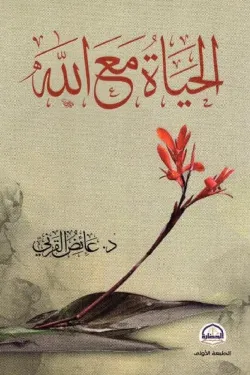 الحياة مع الله
د. عائض القرني
الحضارة
الطبعة الأولى